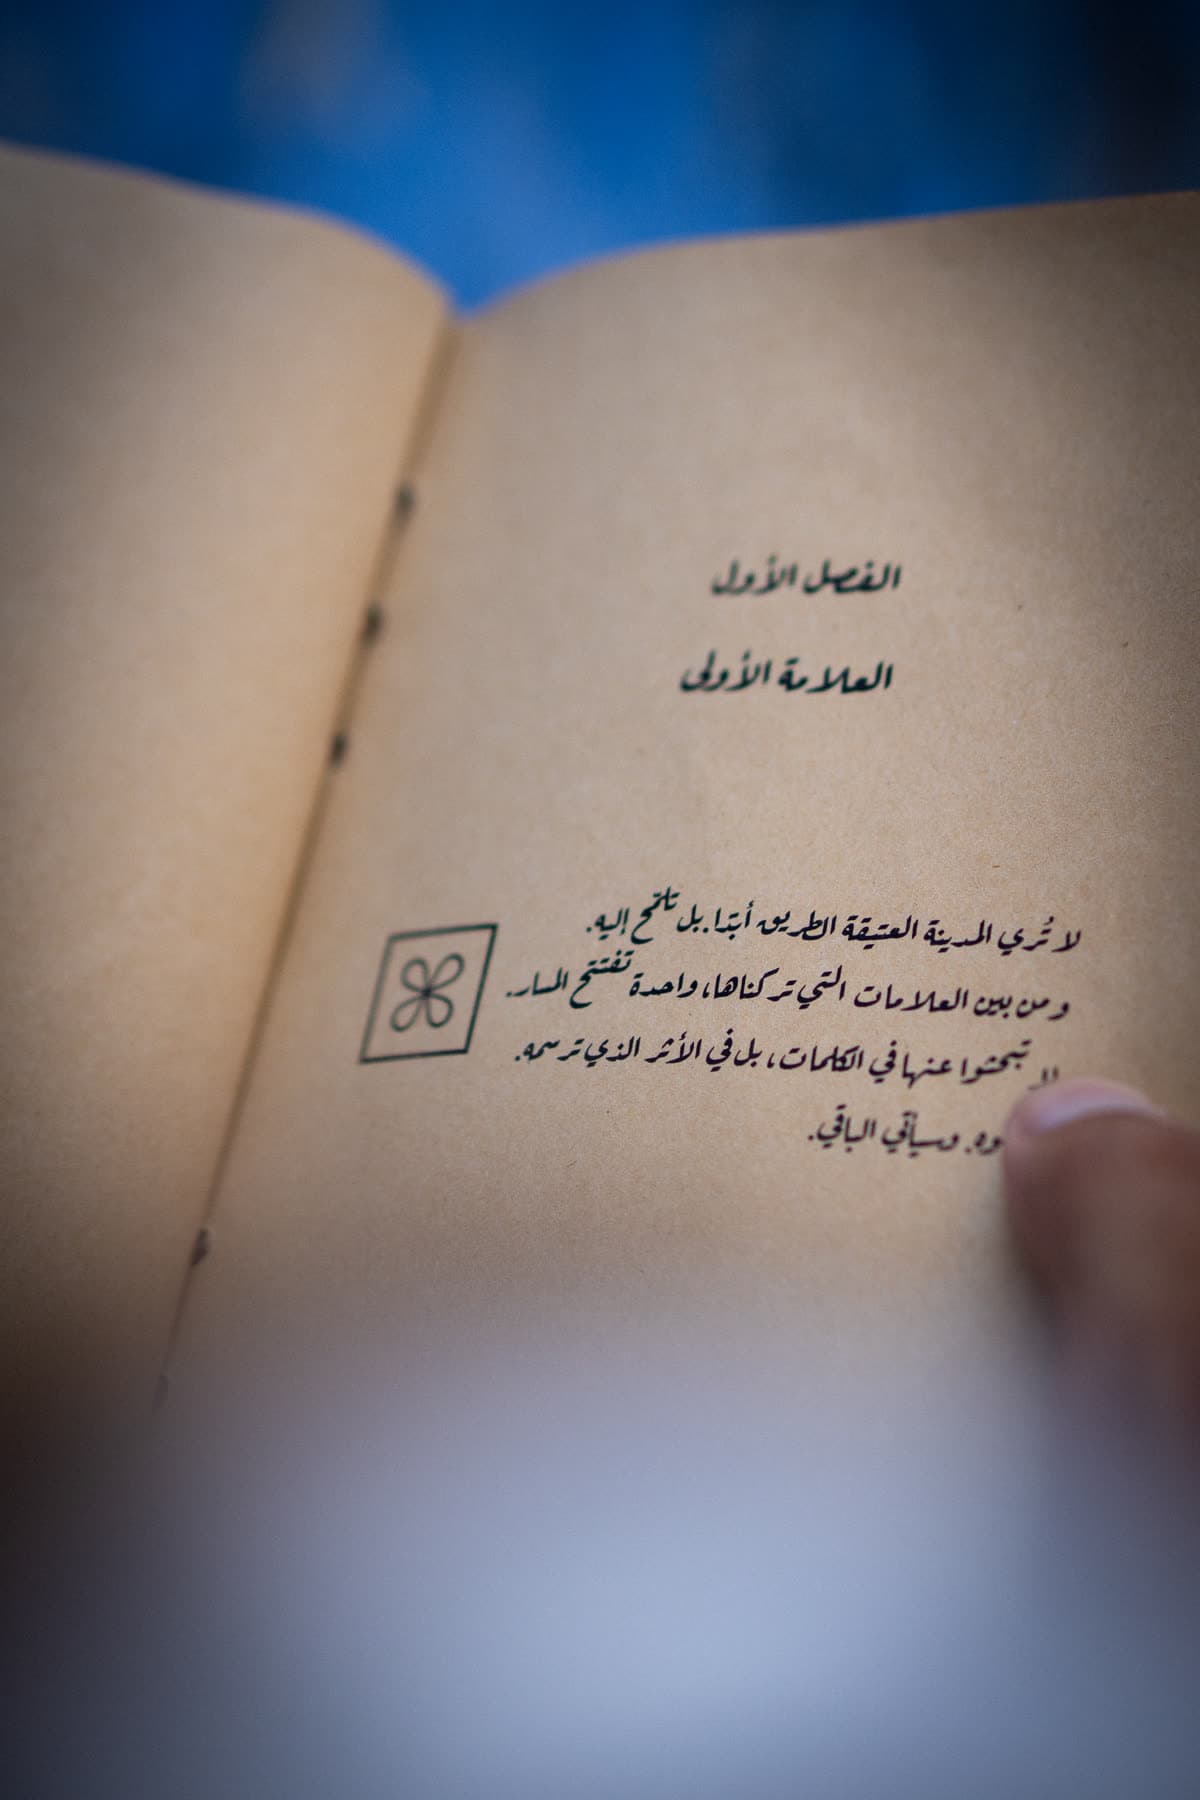 الفصل الأول
العلامة الأولى
لا تُري المدينة العتيقة الطريق أبدًا. بل تلمّح إليه.
ومن بين العلامات التي تركناها، واحدة تفتتح المسار.
لا تبحثوا عنها في الكلمات، بل في الأثر الذي ترسمه.
وسيأتي الباقي.